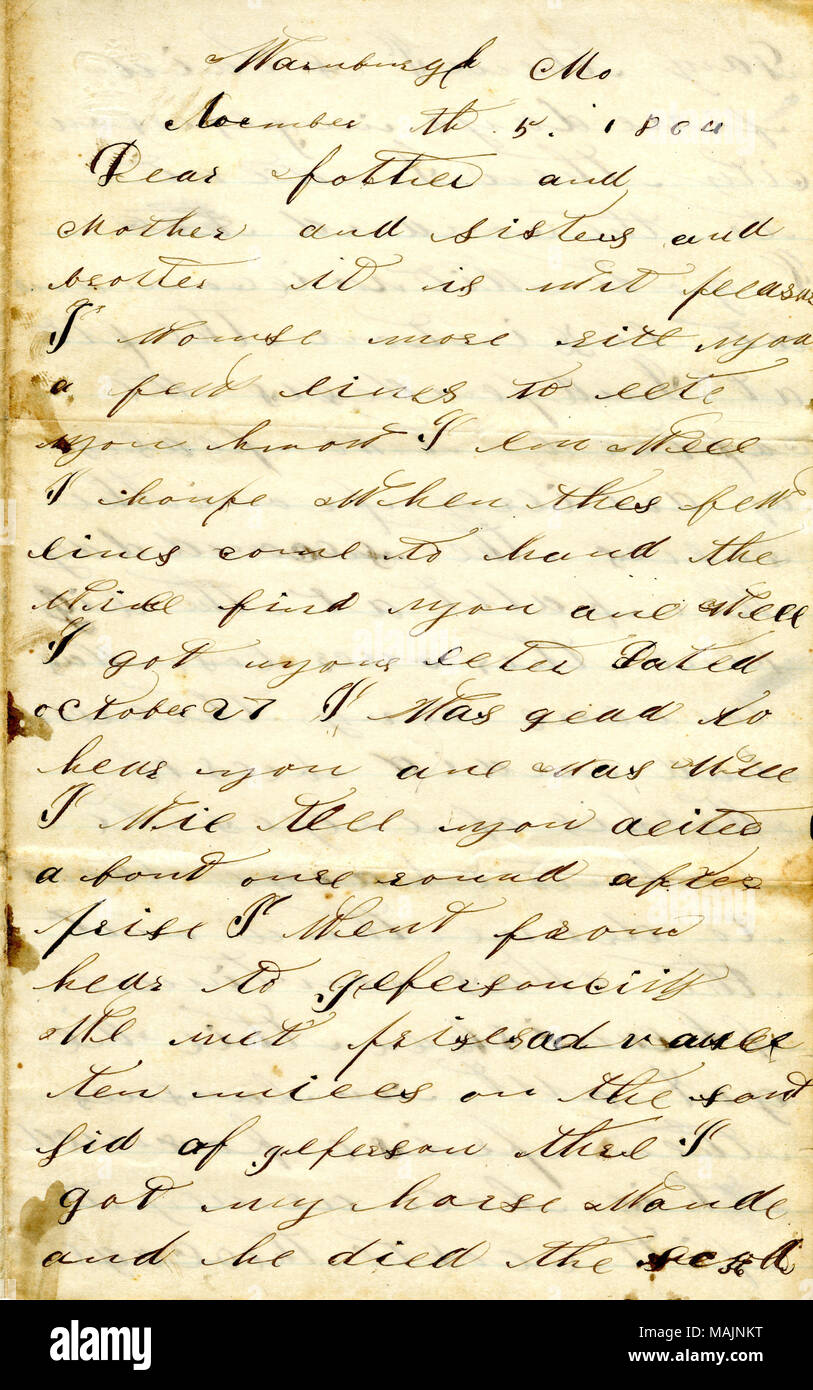 Warnburgh Mo
November th. 5. 1864
Dear fother and
Mother and sisters and
brotter it is wit pleasur
I Wonse more rite you
a few lines to lete
you know I em Well
I houpe When thes few
lines come to hand the
Will find you ane Well
I got your leter Dated
october 27 I Was glad to
hear you ane was Well
I Wil tell you a litel
a bout oure round after
prise I Went from
hear to gefersoncity
We met prises advance
ten miles on the sout
sid of geferson thre I
got my horse Wonde
and he died the
alamy
alamy
alamy
Image ID: MAJNKT
www.alamy.com